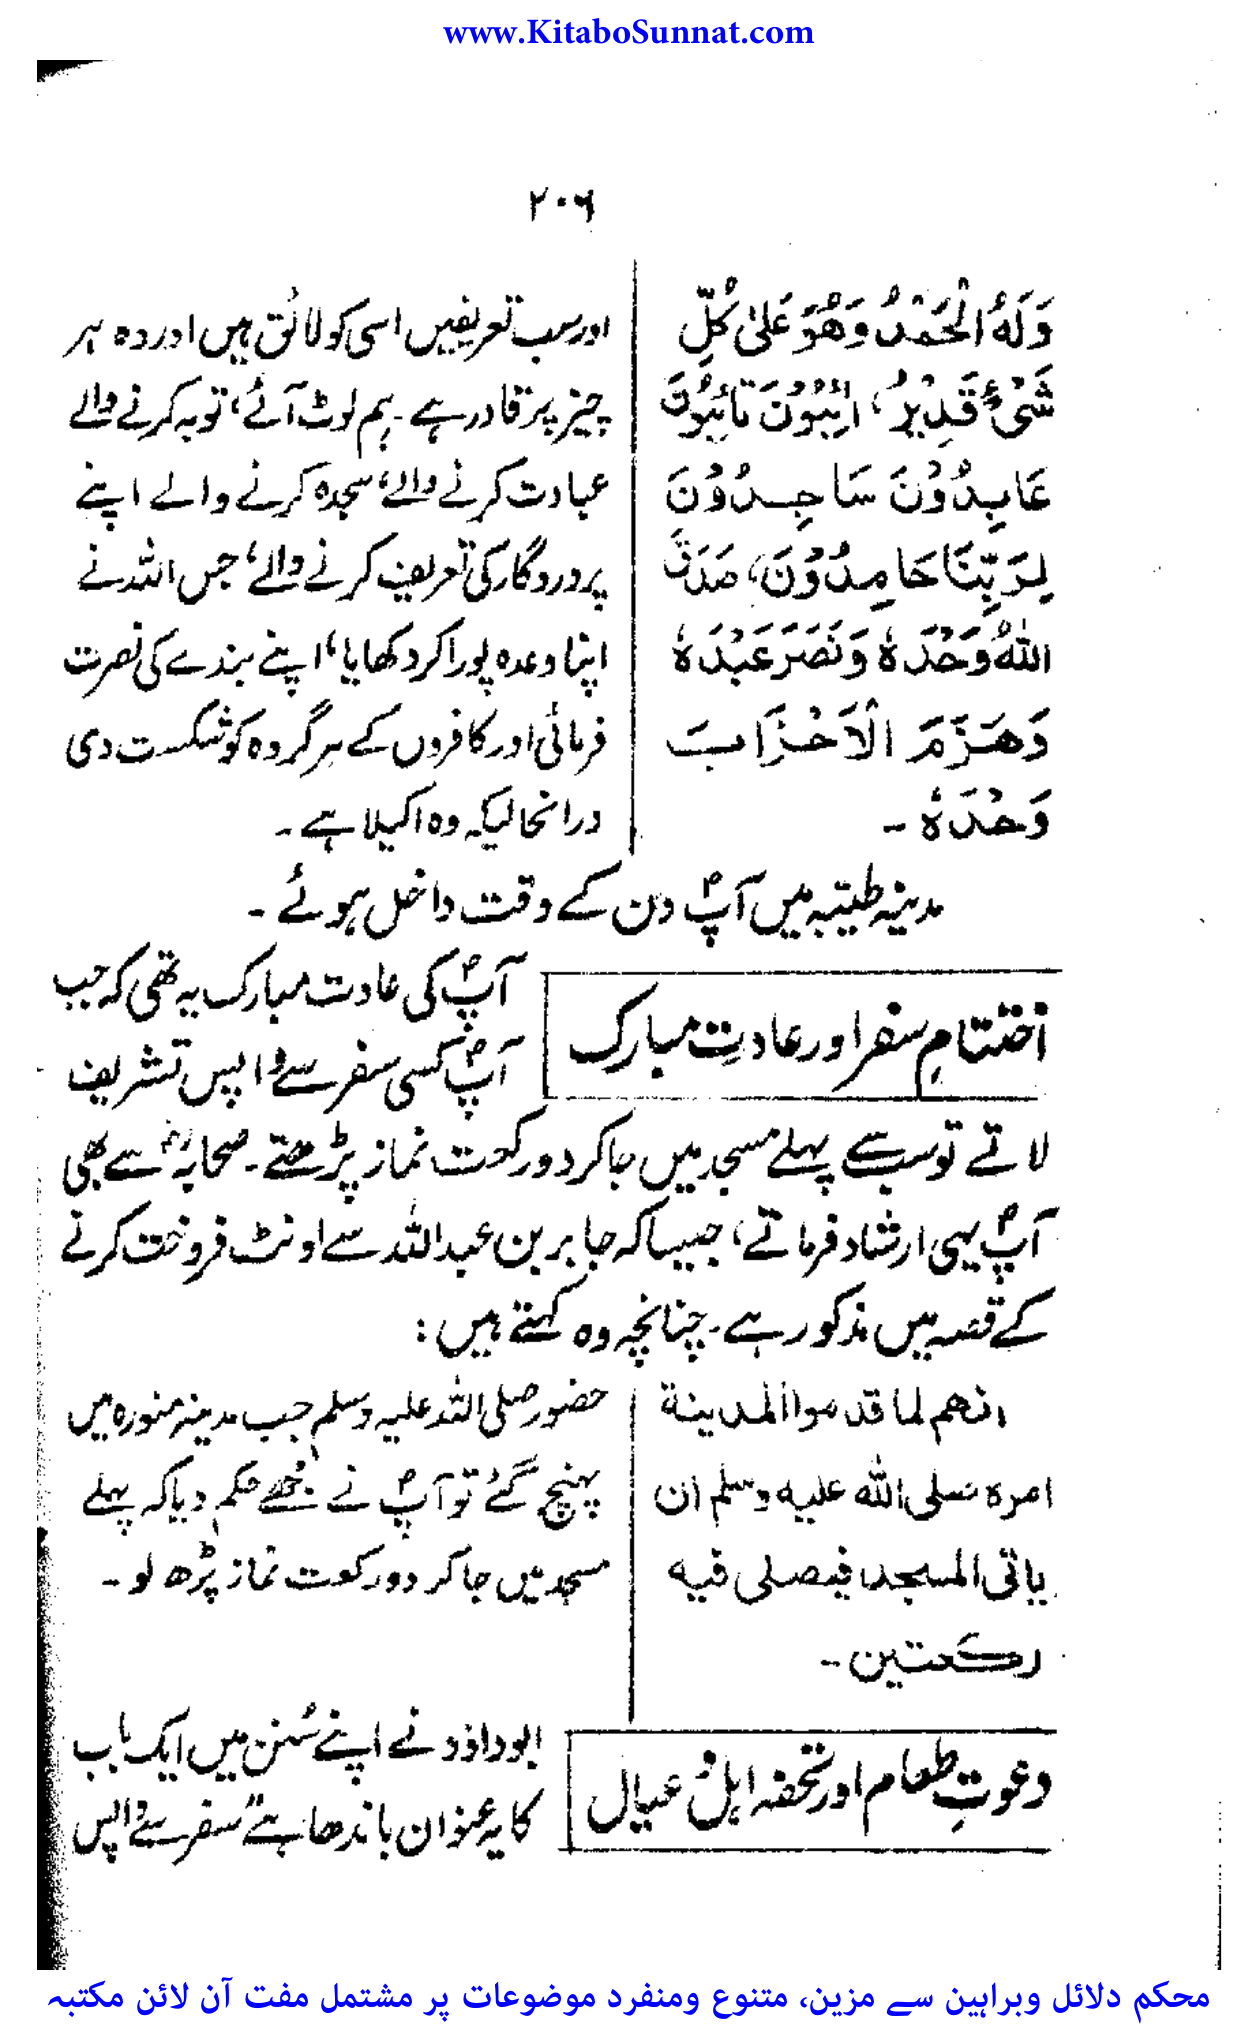 www.KitaboSunnat.com
۲۰۶
وَلَهُ الْحَمْدُ وَهُوَ عَلیٰ كُلِّ
شَیْءٍ قَدِیْرٌ، اٰئِبُوْنَ تَائِبُوْنَ
عَابِدُوْنَ سَاجِدُوْنَ
لِرَبِّنَا حَامِدُوْنَ، صَدَقَ
اللهُ وَحْدَهٗ وَنَصَرَ عَبْدَهٗ
وَهَزَمَ الْاَحْزَابَ
وَحْدَهٗ ۔
اور سب تعریفیں اسی کو لائق ہیں اور وہ ہر
چیز پر قادر ہے ۔ ہم لوٹ آئے، توبہ کرنے والے
عبادت کرنے والے، سجدہ کرنے والے اپنے
پروردگار کی تعریف کرنے والے، جس اللہ نے
اپنا وعدہ پورا کر دکھایا، اپنے بندے کی نصرت
فرمائی اور کافروں کے ہر گروہ کو شکست دی
درانحالیکہ وہ اکیلا ہے ۔
مدینہ طیّبہ میں آپؐ دن کے وقت داخل ہوئے ۔
اختتامِ سفر اور عادتِ مبارک
آپؐ کی عادت مبارک یہ تھی کہ جب
آپؐ کسی سفر سے واپس تشریف
لاتے تو سب سے پہلے مسجد میں جا کر دو رکعت نماز پڑھتے ۔ صحابہؓ سے بھی
آپؐ یہی ارشاد فرماتے، جیسا کہ جابر بن عبداللہ سے اونٹ فروخت کرنے
کے قصہ میں مذکور ہے ۔ چنانچہ وہ کہتے ہیں :
انهم لما قدموا المدينة
امره صلی الله عليه وسلم ان
ياتی المسجد فيصلی فيه
ركعتين ۔
حضور صلی اللہ علیہ وسلم جب مدینہ منورہ میں
پہنچ گئے تو آپؐ نے مجھے حکم دیا کہ پہلے
مسجد میں جا کر دو رکعت نماز پڑھ لو ۔
دعوتِ طعام اور تحفہ اہل و عیال
ابوداؤد نے اپنے سُنن میں ایک باب
کا یہ عنوان باندھا ہے "سفر سے واپس
محکم دلائل وبراہین سے مزین، متنوع ومنفرد موضوعات پر مشتمل مفت آن لائن مکتبہ